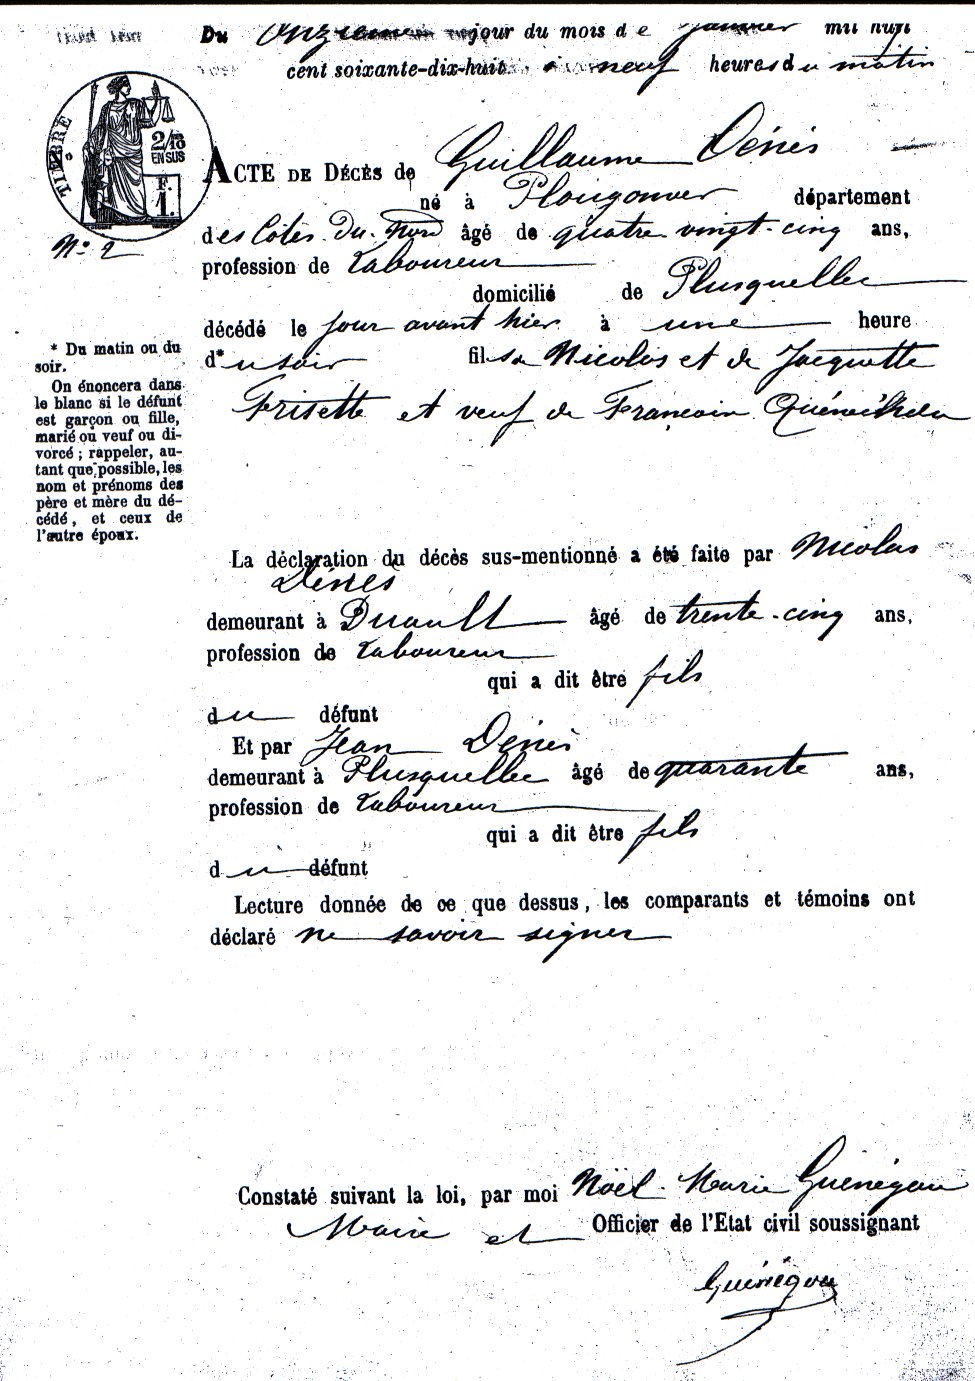 Du onzième jour du mois de janvier mil huit
cent soixante-dix-huit à neuf heures du matin
TIMBRE
2/10
EN SUS
F.
1.
N.º 2
ACTE DE DÉCÈS de Guillaume Dénès
né à Plougonver département
des Côtes-du-Nord âgé de quatre vingt-cinq ans,
profession de Laboureur
domicilié de Plusquellec
décédé le jour avant hier à une heure
d* u soir fils de Nicolas et de Jacquette
Frisette et veuf de
* Du matin ou du
soir.
On énoncera dans
le blanc si le défunt
est garçon ou fille,
marié ou veuf ou di-
vorcé ; rappeler, au-
tant que possible, les
nom et prénoms des
père et mère du dé-
cédé, et ceux de
l'autre époux.
La déclaration du décès sus-mentionné a été faite par Nicolas
Dénès
demeurant à Duault âgé de trente-cinq ans,
profession de Laboureur
qui a dit être fils
du défunt
Et par Jean Dénès
demeurant à Plusquellec âgé de quarante ans,
profession de Laboureur
qui a dit être fils
du défunt
Lecture donnée de ce que dessus, les comparants et témoins ont
déclaré ne savoir signer
Constaté suivant la loi, par moi Noël-Marie Guénégou
Maire et Officier de l'Etat civil soussignant
Guénégou